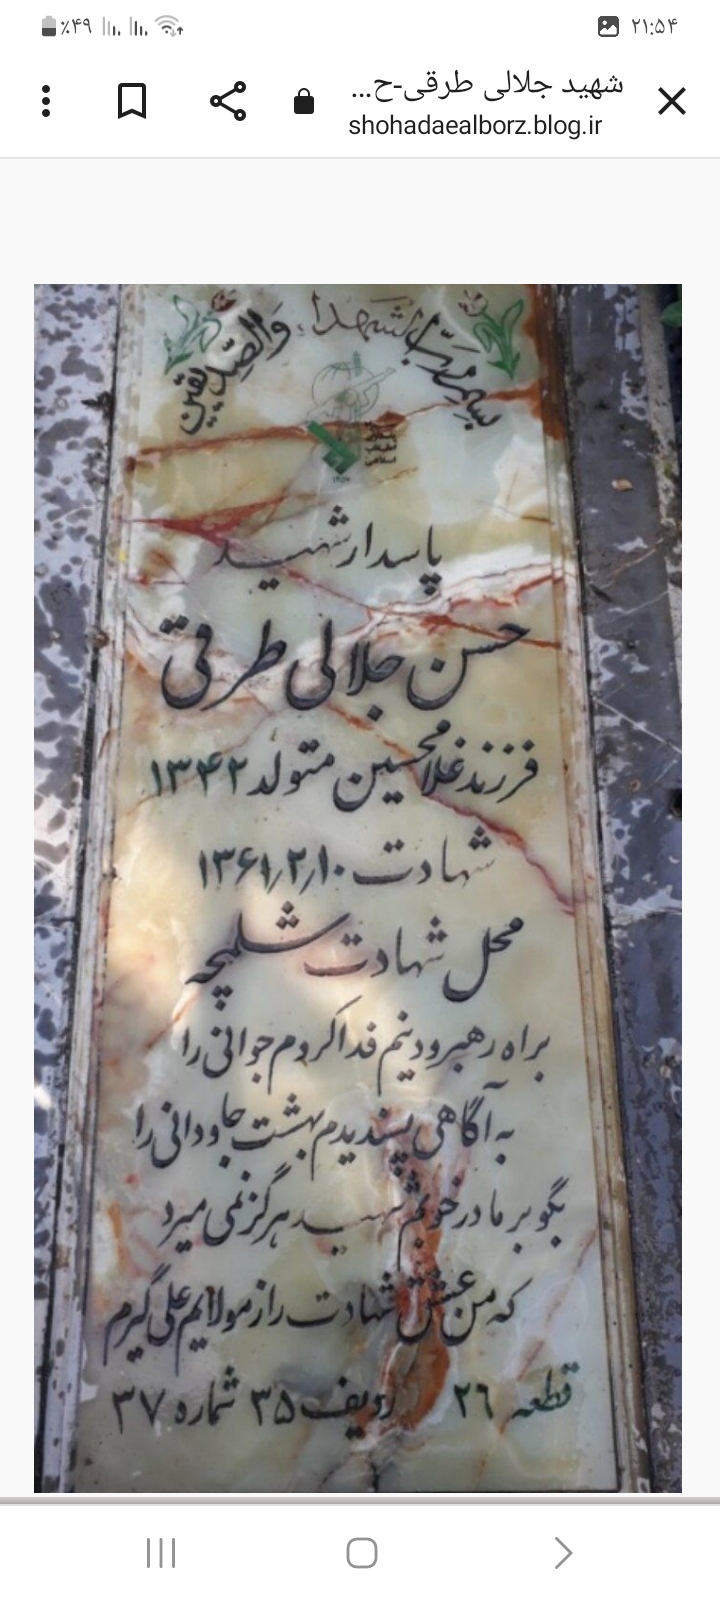 ٪۴۹
۲۱:۵۴
شهید جلالی طرقی-ح...
shohadaealborz.blog.ir
بسم رب الشهداء والصدیقین
پاسدار شهید
حسن جلالی طرقی
فرزند غلامحسین متولد ۱۳۴۲
شهادت ۱۳۶۱/۲/۱۰
محل شهادت شلمچه
براه رهبر و دینم فدا کردم جوانی را
به آگاهی پسندیدم بهشت جاودانی را
بگو بر مادر خوبم شهید هرگز نمی میرد
که من عشق شهادت را از مولایم علی گیرم
قطعه ۲۶ ردیف ۳۵ شماره ۳۷